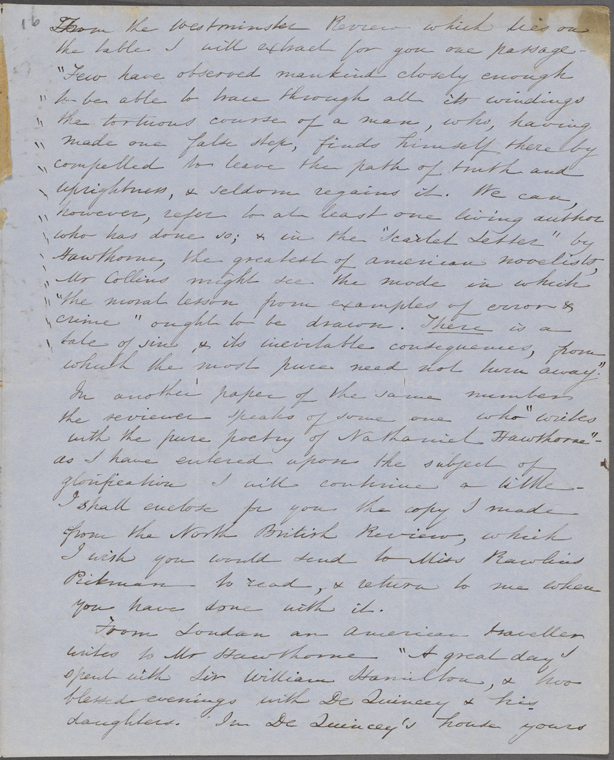 16
From the Westminster Review which lies on
the table I will extract for you one passage-
"Few have observed mankind closely enough
" to be able to trace through all its windings
" the tortuous course of a man, who, having
" made one false step, finds himself thereby
" compelled to leave the path of truth and
" uprightness, & seldom regains it. We can,
" however, refer to at least one living author
" who has done so; & in the "Scarlet Letter" by
" Hawthorne, the greatest of american novelists,
" Mr Collins might see the mode in which
" "the moral lesson from examples of error &
" crime" ought to be drawn. There is a
" tale of sin, & its inevitable consequences, from
" which the most pure need not turn away."
In another paper of the same number
the reviewer speaks of some one who "writes
with the pure poetry of Nathaniel Hawthorne"-
as I have entered upon the subject of
glorification I will continue a little-
I shall enclose for you the copy I made
from the North British Review, which
I wish you would send to Miss Rawlins
Pickman to read, & return to me when
you have done with it.
From London an American traveller
writes to Mr Hawthorne "A great day I
spent with Sir William Hamilton, & two
blessed evenings with De Quincey & his
daughters. In De Quincey's house yours